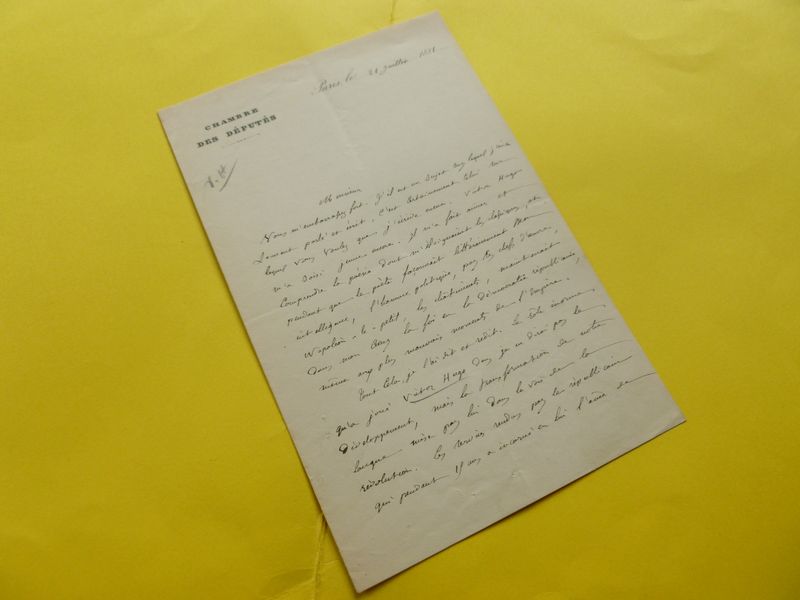 Paris, le 21 juillet 1881
CHAMBRE
DES DÉPUTÉS
Monsieur
Vous m'embarrassez fort. S'il est un sujet sur lequel j'aie
souvent parlé et écrit, c'est certainement celui sur
lequel vous voulez que j'écrive encore. Victor Hugo
m'a saisi jeune encore. Il m'a fait aimer et
comprendre la poésie dont m'éloignaient les classiques, et
pendant que le poète façonnait littérairement mon
intelligence, l'homme politique, par ses chefs d'œuvre,
Napoléon-le-petit, les châtiments, maintenait
dans mon âme la foi en la démocratie républicaine,
même aux plus mauvais moments de l'Empire.
Tout cela, je l'ai dit et redit. Le rôle énorme
qu'a joué Victor Hugo dans je ne dirai pas le
développement, mais la transformation de notre
langue mise par lui dans la voie de la
révolution. Les services rendus par le républicain
qui pendant 18 ans a incarné en lui l'âme de